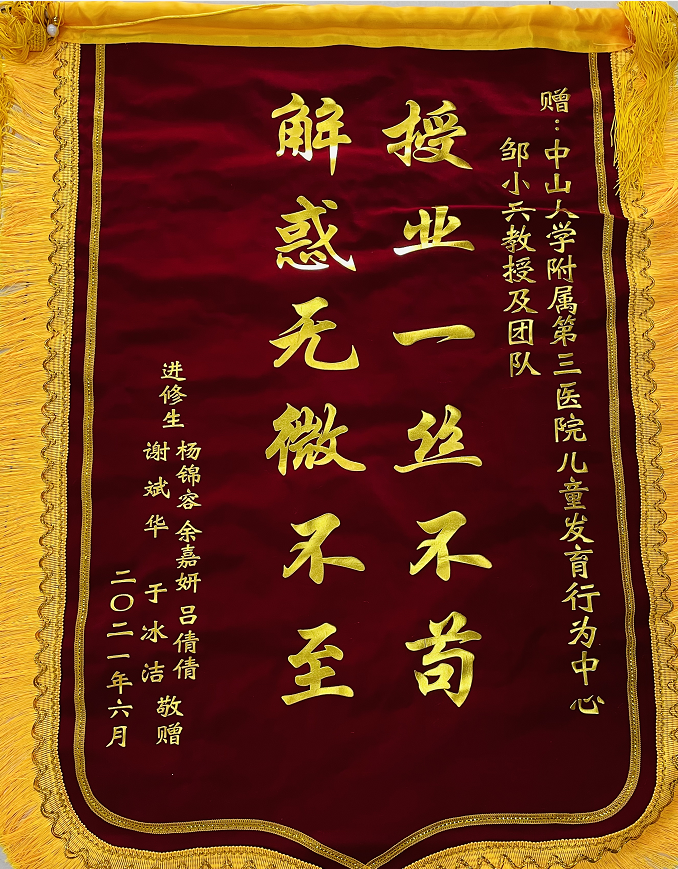 赠：中山大学附属第三医院儿童发育行为中心
邹小兵教授及团队
授业一丝不苟
解惑无微不至
进修生
杨锦容 余嘉妍 吕倩倩
谢斌华 于冰洁 敬赠
二〇二一年六月